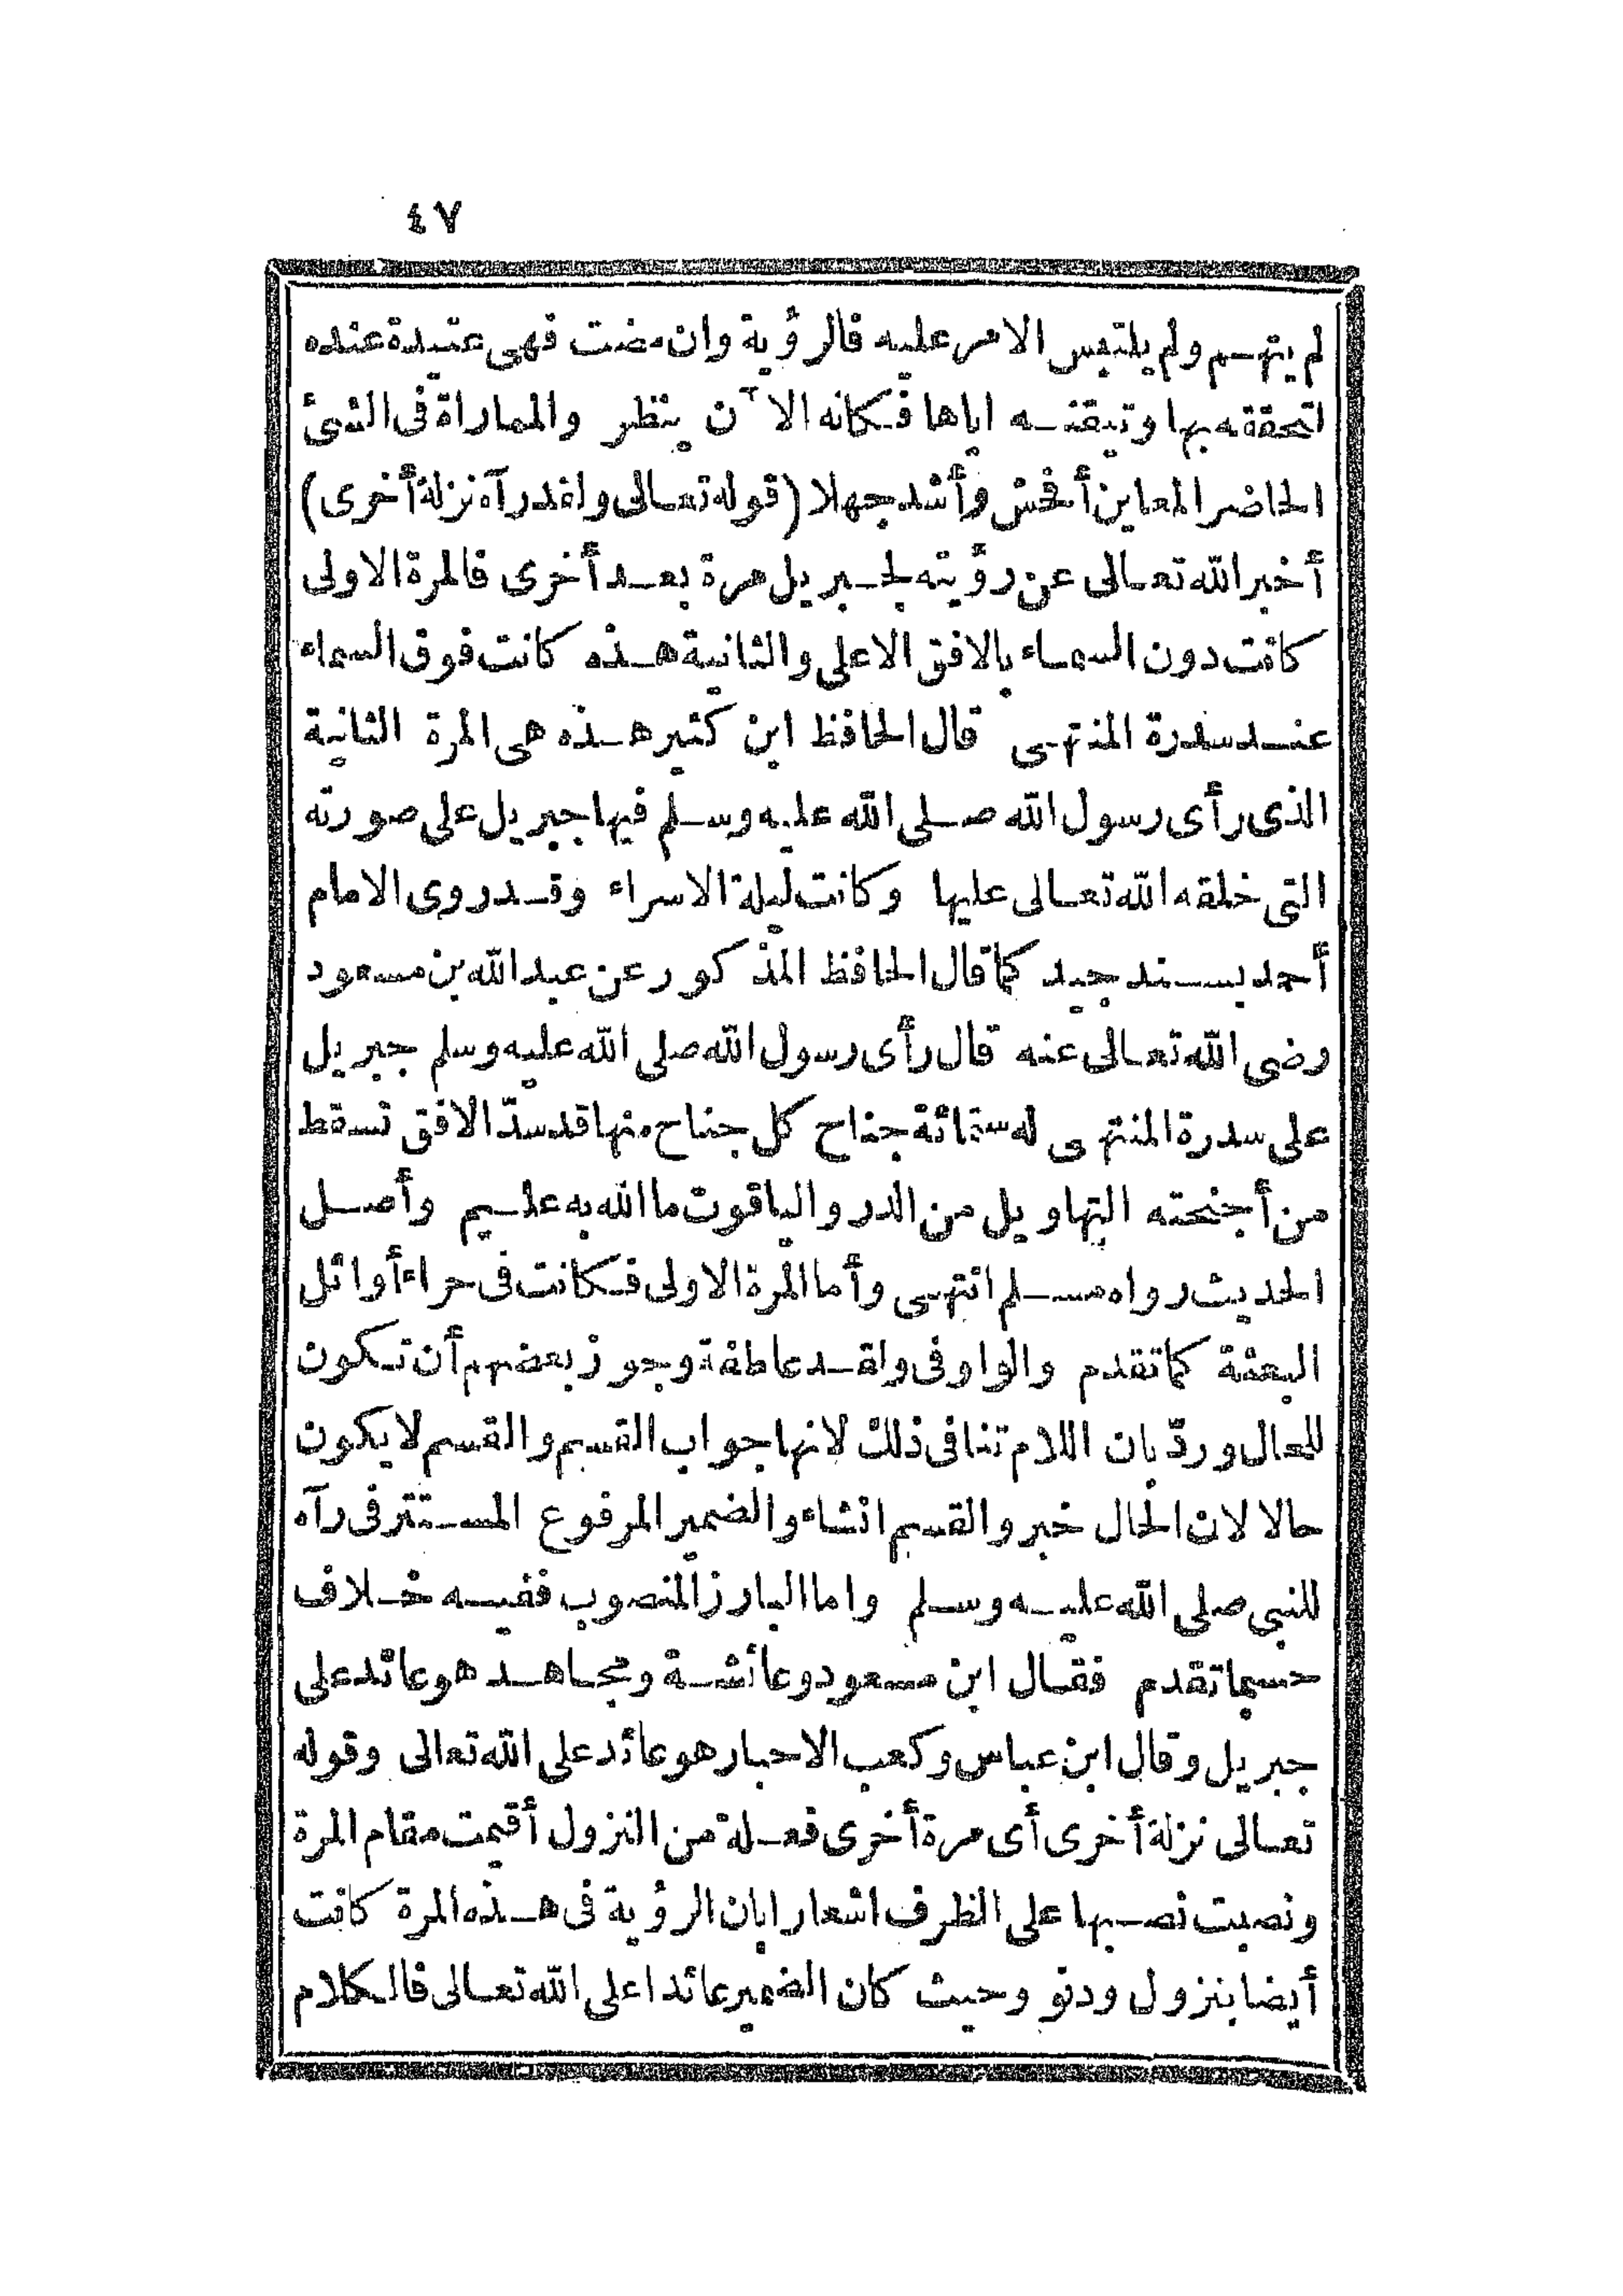 ٤٧
لم يتهم ولم يلتبس الامر عليه فالرؤية وان مضت فهى عتيدة عنده
لتحققه بها وتيقنه اياها فكانه الآن ينظر والمماراة فى الشئ
الحاضر المعاين أفحش وأشد جهلا (قوله تعالى ولقد رآه نزلة أخرى)
أخبر الله تعالى عن رؤيته لجبريل مرة بعد أخرى فالمرة الاولى
كانت دون السماء بالافق الاعلى والثانية هذه كانت فوق السماء
عند سدرة المنتهى قال الحافظ ابن كثير هذه هى المرة الثانية
الذى رأى رسول الله صلى الله عليه وسلم فيها جبريل على صورته
التى خلقه الله تعالى عليها وكانت ليلة الاسراء وقد روى الامام
أحمد بسند جيد كما قال الحافظ المذكور عن عبد الله بن مسعود
رضى الله تعالى عنه قال رأى رسول الله صلى الله عليه وسلم جبريل
على سدرة المنتهى له ستمائة جناح كل جناح منها قد سدّ الافق تسقط
من أجنحته التهاويل من الدر والياقوت ما الله به عليم وأصل
الحديث رواه مسلم انتهى وأما المرة الاولى فكانت فى حراء أوائل
البعثة كما تقدم والواو فى ولقد عاطفة وجوز بعضهم أن تكون
للحال وردّ بان اللام تنافى ذلك لانها جواب القسم والقسم لا يكون
حالا لان الحال خبر والقسم انشاء والضمير المرفوع المستتر فى رآه
للنبى صلى الله عليه وسلم واما البارز المنصوب ففيه خلاف
حسبما تقدم فقال ابن مسعود وعائشة ومجاهد هو عائد على
جبريل وقال ابن عباس وكعب الاحبار هو عائد على الله تعالى وقوله
تعالى نزلة أخرى أى مرة أخرى فعلة من النزول أقيمت مقام المرة
ونصبت نصبها على الظرف اشعارا بان الرؤية فى هذه المرة كانت
أيضا بنزول ودنو وحيث كان الضمير عائدا على الله تعالى فالكلام